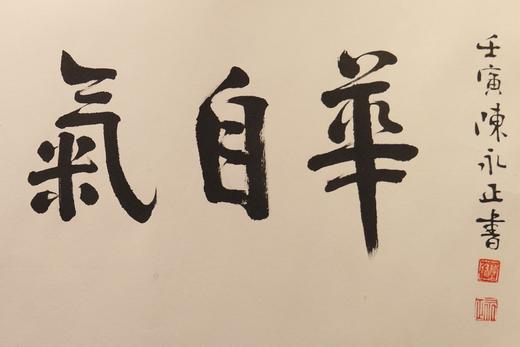 氣自華
壬寅陳永正書